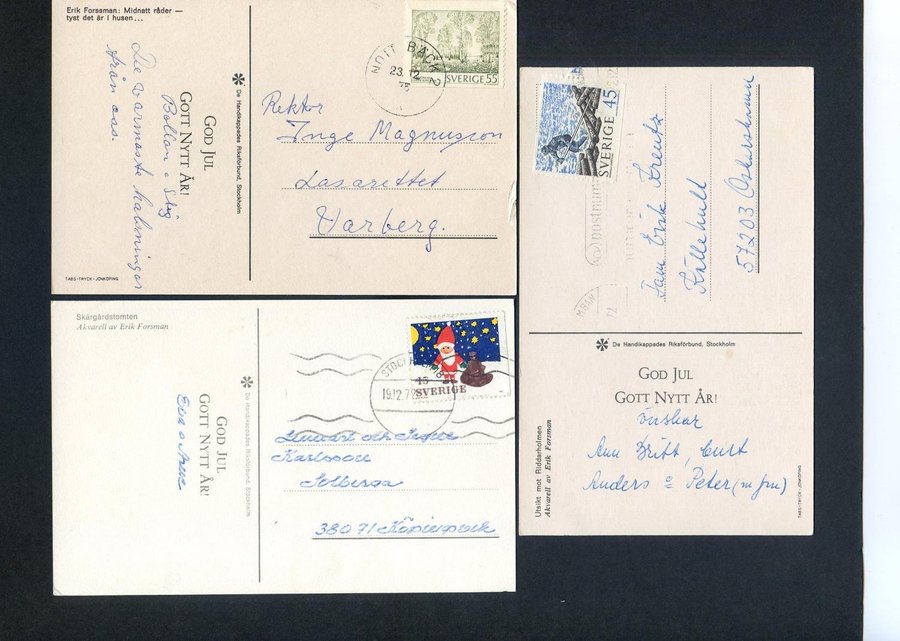 Erik Forssman: Midnatt råder –
tyst det är i husen...
De varmaste hälsningar
från oss.
GOD JUL
GOTT NYTT ÅR!
Stig
De Handikappades Riksförbund, Stockholm
TABS-TRYCK-JÖNKÖPING
BÄCK 2
23. 12
75
SVERIGE 55
Rektor
Inge Magnusson
Lasarettet
Varberg.
SVERIGE 45
postnum
Fam Erik
Källehult
57203 Oskarshamn
De Handikappades Riksförbund, Stockholm
GOD JUL
GOTT NYTT ÅR!
önskar
Ann Britt, Curt
Anders o Peter (m fm)
Utsikt mot Riddarholmen
Akvarell av Erik Forsman
TABS-TRYCK-JÖNKÖPING
Skärgårdstomten
Akvarell av Erik Forsman
GOD JUL
GOTT NYTT ÅR!
De Handikappades Riksförbund, Stockholm
19.12.72
SVERIGE
Lennart och
Karlsson
Solberga
38071 Köpingsvik